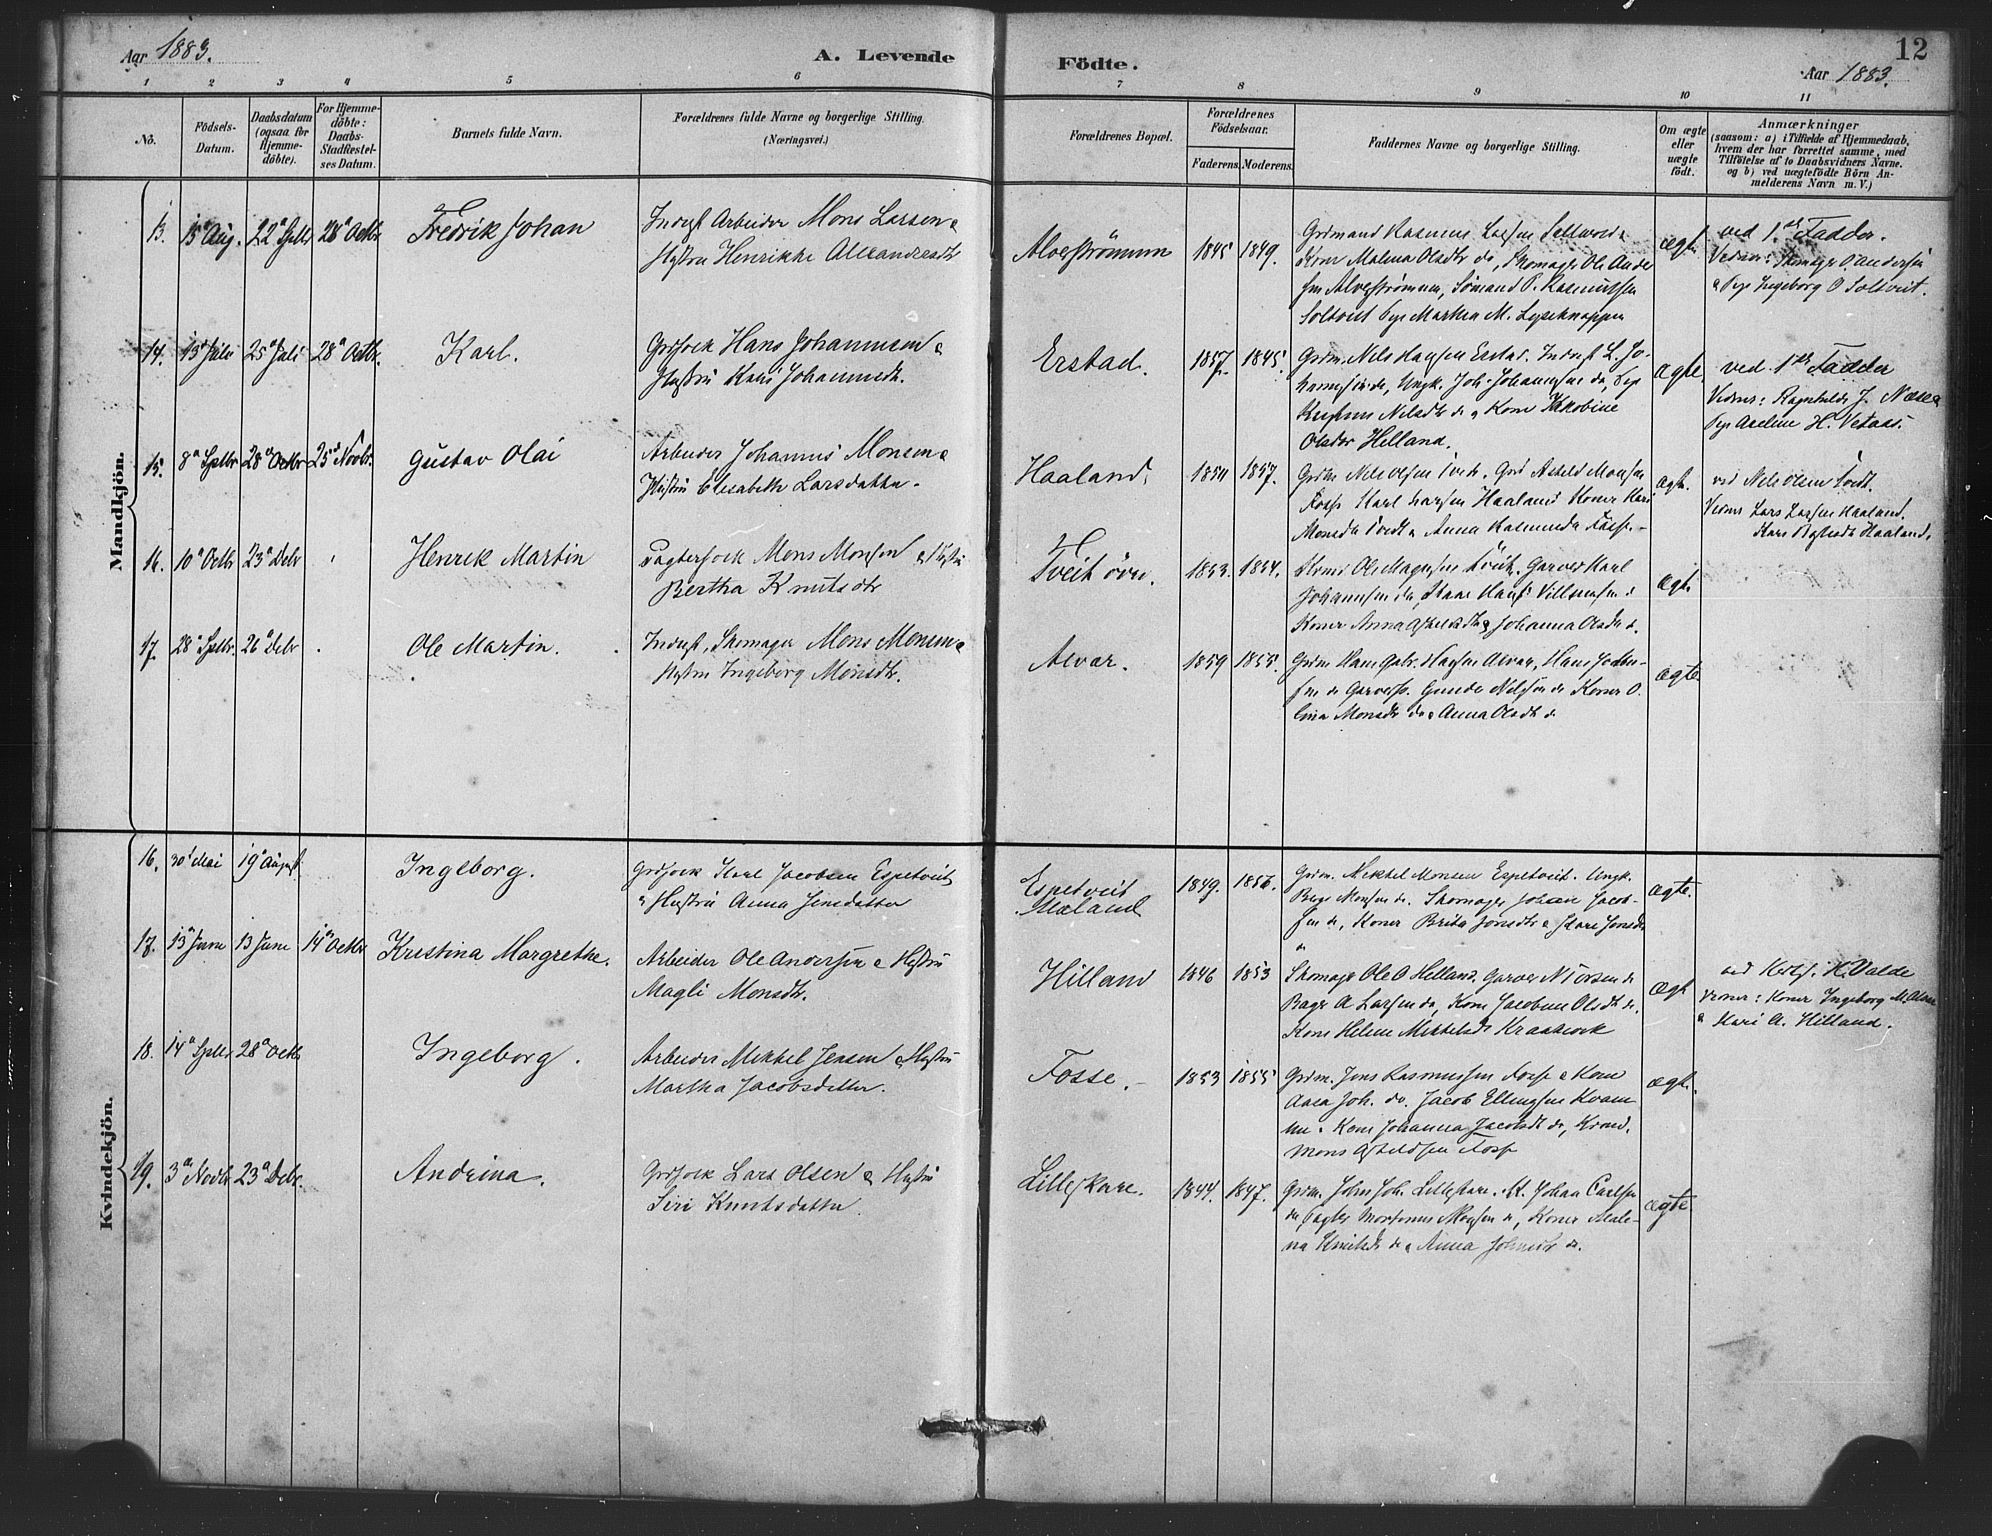 Aar 1883.
A. Levende
Födte.
12
Aar 1883.
1 2 3 4 5 6 7 8 9 10 11
No.
Födsels-
Datum.
Daabsdatum
(ogsaa for
Hjemme-
döbte).
For Hjemme-
döbte:
Daabs-
Stadfæstel-
ses Datum.
Barnets fulde Navn.
Forældrenes fulde Navne og borgerlige Stilling.
(Næringsvei.)
Forældrenes Bopæl.
Forældrenes
Födselsaar.
Faderens. Moderens.
Faddernes Navne og borgerlige Stilling.
Om ægte
eller
uægte
födt.
Anmærkninger
(saasom: a) i Tilfælde af Hjemmedaab,
hvem der har forrettet samme, med
Tilföielse af to Daabsvidners Navne.
og b) ved uægtefödte Börn An-
melderens Navn m. V.)
Mandkjön.
13. 15 Aug. 22 Septbr 28 Octbr. Fredrik Johan
Inderst Arbeider Mons Larsen &
Hustru Henrikke Alexandersdtr
Alverströmmen 1845 1849.
Kone Malena Olsdtr do, Skomager Ole Ander
sen Alverströmmen, Sömand P. Rasmussen
Soltveit Pige Martha M.
ægt.
ved 1ste Fadder.
Vidner: Skomager O. Andersen
& Pige Ingeborg O Soltveit.
14. 13 Juli 25 Juli 28 Octbr. Karl.
Grdfork Hans Johannesen &
Hustru Kari Johannesdtr.
Erstad. 1857. 1845.
Grdm. Nils Hansen Erstad. Inderst L. Jo-
hannessen do, Ungk. Joh. Johannessen do, Pige
Nilsdtr do & Kone Jakobine
Olsdtr Helland.
ægte.
ved 1ste Fadder
Vidner: Ragnhilda J. Næse &
Pige Axeline H. Vetaas.
15. 8 Septbr 28 Octbr 25 Novbr. Gustav Olai
Arbeider Johannes Monsen &
Hustru Elisabeth Larsdatter.
Haaland. 1857.
Grdm Nils Olsen Tvedt. Grd Askeld Monsen
Fosse Karl Larsen Haaland Koner Kari
Monsdtr Tvedt & Anna Rasmusdtr Fosse.
ægt.
ved Nils Olsen Tvedt.
Vidner Lars Larsen Haaland.
Kari Haaland.
16. 10 Octbr 23 Debr Henrik Martin
Pagterfolk Mons Monsen & Hustru
Bertha Knutsdtr
Tveit övre. 1853. 1854.
Ole Magnussen Garver Karl
Johannesen do,
Koner Anna & Johanna Olsdtr do.
ægt.
17. 28 Septbr. 26 Debr Ole Martin.
Inderst, Skomager Mons Monsen &
Hustru Ingeborg Monsdtr.
Alvær. 1859 1855.
Grdm Hans Gabr. Hansen Alvær, Hans
sen do Garver Gunder Nilsen do Koner O-
lina Monsdtr do & Anna Olsdtr do
ægte.
Kvindekjön.
16. 30 Mai 19 August Ingeborg.
Grdfolk Karl Jacobsen Espetveit
& Hustru Anna Jensdatter
Espetveit
Mæland 1849. 1856.
Grdm. Mikkel Monsen Espetveit. Ungk.
Monsen do. Skomager Johan Jacob-
sen do, Koner Brita Jonsdtr & Kari Jonsdtr
do
ægte.
17. 13 Juni 13 Juni 14 Octbr Kristina Margrethe.
Arbeider Ole Andersen & Hustru
Magli Monsdtr.
Hilland 1846 1853
Skomager Ole O Helland. Garver N Iversen do
Bager A Larsen do, Kone Jacobine Olsdtr do.
Kone Helene Mikkelsdtr
ægt.
ved K. Valde
Vidner: Koner Ingeborg M. Olsen
& Kari A. Hilland.
18. 14 Septbr 28 Octbr Ingeborg.
Arbeider Mikkel Jensen & Hustru
Martha Jacobsdatter.
Fosse. 1853 1855
Grdm. Jens Rasmussen Fosse & Kone
Aasa Joh. do. Jacob Ellingsen Kvam-
me & Kone Johanna Jacobsdtr do,
Mons Askeldsen Fosse
ægt.
19. 3 Novbr 23 Debr. Andrina.
Grdfolk Lars Olsen & Hustru
Siri Knutsdatter.
Lilleskare. 1844. 1847.
Grdm. John Joh. Lilleskare. Johan Carlsen
do, Pagter Mortinus Mogsen do, Koner Male-
na Knutsdtr do & Anna Johnsdtr do.
ægte